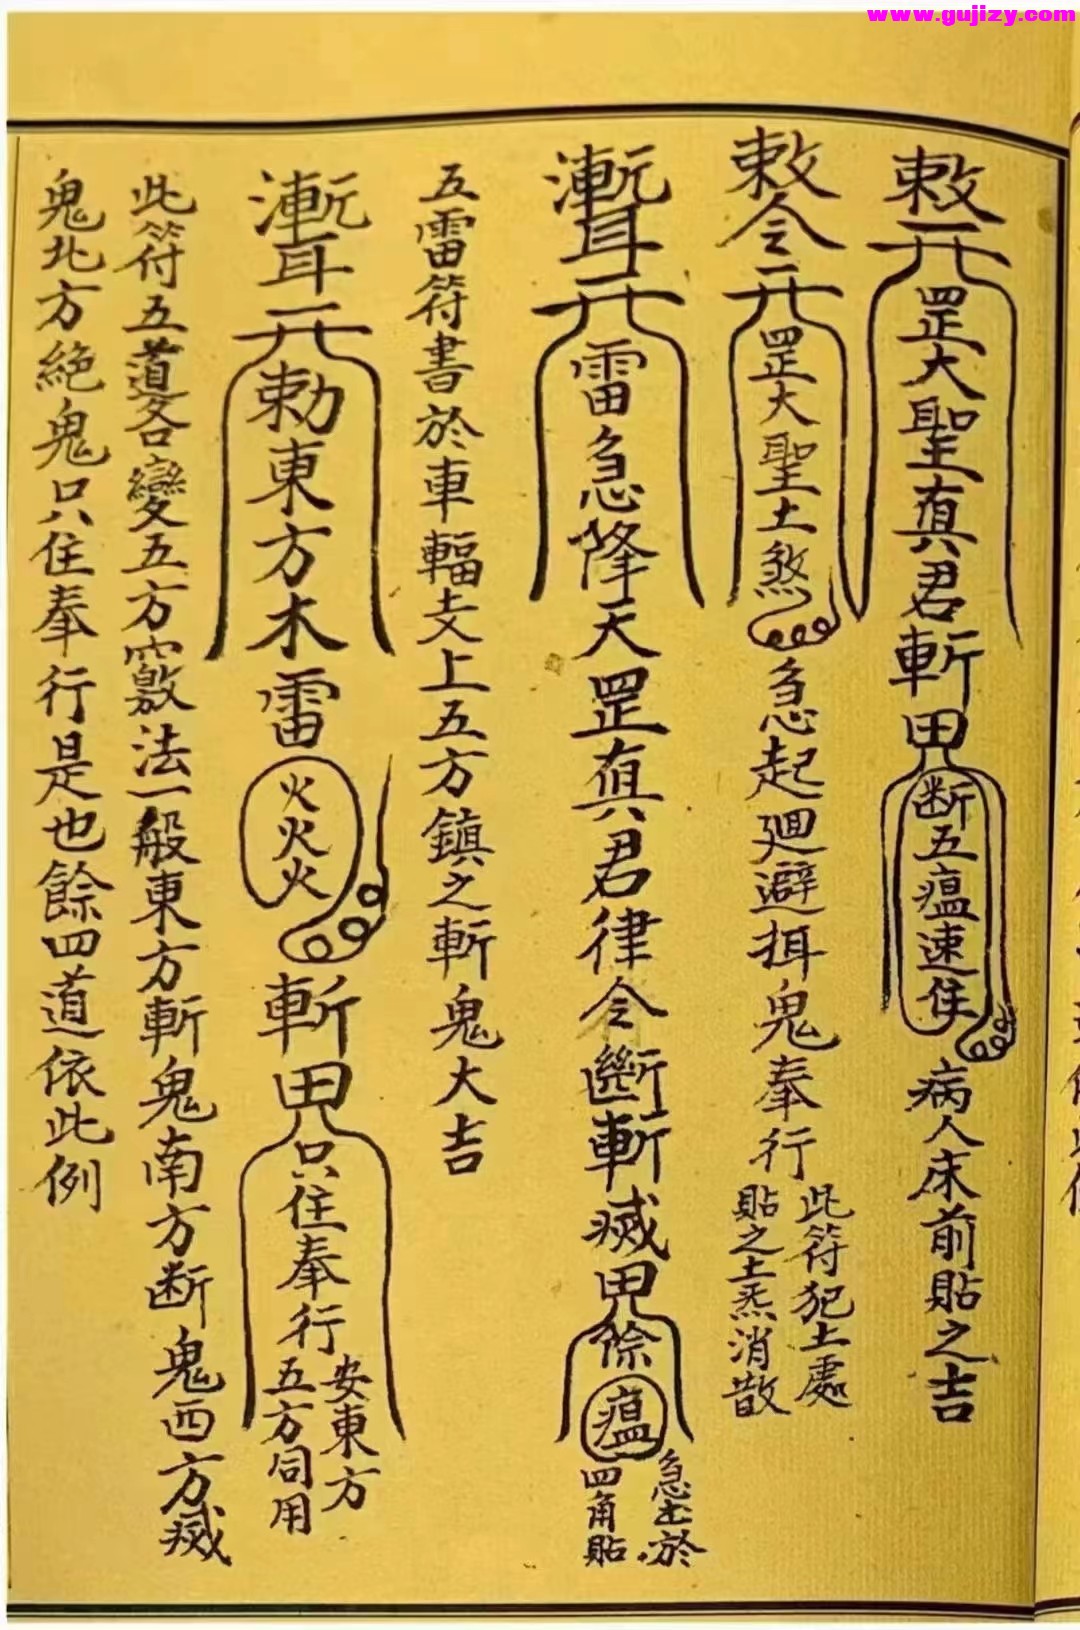 www.gujizy.com
敕 罡大聖真君斬 断五瘟速住 病人床前貼之吉
敕令 罡大聖土煞 急起廻避 鬼奉行
此符犯土處
貼之土炁消散
雷急降天罡真君律令斷斬滅 除瘟
急 於
四角貼
五雷符書於車輻 上五方鎮之斬鬼大吉
勅東方木雷火火火斬 只住奉行
安東方
五方同用
此符五道各變五方 法一般東方斬鬼南方断鬼西方滅
鬼北方絶鬼只住奉行是也餘四道依此例